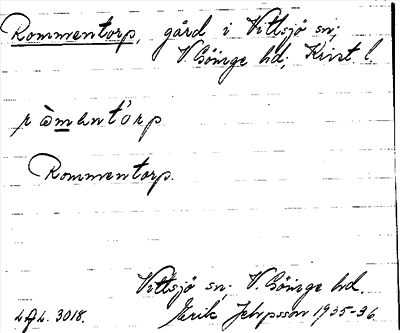 Rommentorp, gård i Vittsjö sn;
V. Göinge hd; Krist. l.
Rommentorp.
Vittsjö sn; V. Göinge hd.
L.A.L. 3018. Erik Jeppsson 1935-36.